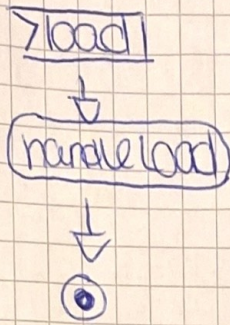 load
handleload